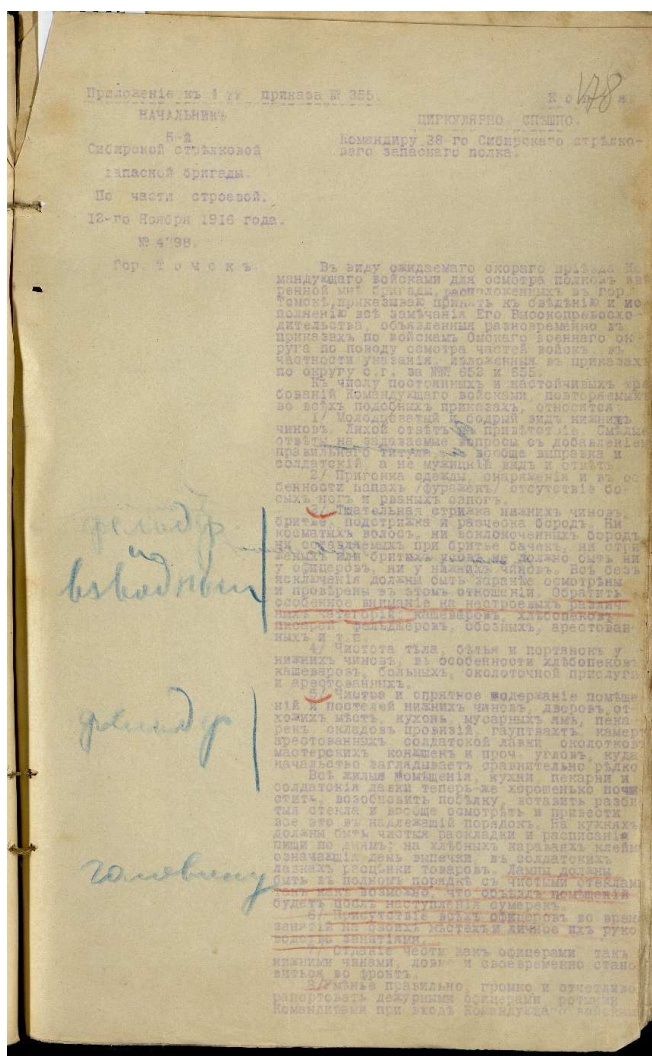 178
Приложеніе къ 1 прикаэа № 355.
Копія.
НАЧАЛЬНИКЪ
8-й
Сибирской стрѣлковой
запасной бригады.
По части строевой.
12-го Ноября 1916 года.
№ 4798.
Гор. Томскъ.
ЦИРКУЛЯРНО СПѢШНО.
Командиру 38-го Сибирскаго стрѣлко-
ваго запаснаго полка.
Въ виду ожидаемаго скораго пріѣзда Ко
мандующаго войсками для осмотра полковъ ввѣ
ренной мнѣ бригады, расположенныхъ въ гор.
Томскѣ, приказываю принять къ свѣдѣнію и ис
полненію всѣ замѣчанія Его Высокопревосхо-
дительства, объявленныя разновременно въ
приказахъ по войскамъ Омскаго военнаго ок-
руга по поводу осмотра частей войскъ въ
частности указанія, изложенныя въ приказахъ
по округу с.г. за №№ 653 и 655.
Къ числу постоянныхъ и настойчивыхъ тре
бованій Командующаго войсками, повторяемыхъ
во всѣхъ подобныхъ приказахъ, относятся
1/ Молодцоватый и бодрый видъ нижнихъ
чиновъ. Лихой отвѣтъ на привѣтствіе. Смѣлые
отвѣты на задаваемые вопросы съ добавленіемъ
правильнаго титула, и вообще выправка и
солдатскій, а не мужицкій видъ и отвѣтъ
2/ Пригонка одежды, снаряженія и въ осо
бенности папахъ /фуражекъ/ отсутствіе бо-
сыхъ ногъ и рваныхъ сапогъ.
3/ Тщательная стрижка нижнихъ чиновъ,
бритье, подстрижка и расческа бородъ. Ни
косматыхъ волосъ, ни всклокоченныхъ бородъ
ни оставляемыхъ при бритье бачекъ, ни стри
женыхъ или бритыхъ усовъ не должно быть ни
у офицеровъ, ни у нижнихъ чиновъ. Всѣ безъ
исключенія должны быть заранѣе осмотрѣны
и провѣрены въ этомъ отношеніи. Обратить
особенное вниманіе на нестроевыхъ различ
ныхъ категорій: кашеваровъ, хлѣбопековъ
писарей фельдшеровъ, обозныхъ, арестован-
ныхъ и т.п.
4/ Чистота тѣла, бѣлья и портянокъ у
нижнихъ чиновъ, въ особенности хлѣбопековъ
кашеваровъ, больныхъ, околоточной прислуги
и арестованныхъ.
5/ Чистое и опрятное содержаніе помѣще
ній и постелей нижнихъ чиновъ, дворовъ, от-
хожихъ мѣстъ, кухонь, мусорныхъ ямъ, пека
ренъ складовъ провизіи, гауптвахтъ, камеръ
арестованныхъ солдатской лавки околотковъ
мастерскихъ конюшенъ и проч. угловъ, куда
начальство заглядываетъ сравнительно рѣдко
Всѣ жилыя помѣщенія, кухни пекарни и
солдатскія лавки теперь-же хорошенько почи
стить, возобновить побѣлку, вставить разби
тыя стекла и вообще осмотрѣть и привести
все это въ надлежащій порядокъ. На кухняхъ
должны быть чистыя раскладки и расписанія
пищи по днямъ; на хлѣбныхъ караваяхъ клейма
означающія день выпечки, въ солдатскихъ
лавкахъ расцѣнки товаровъ. Лампы должны
быть въ полномъ порядкѣ съ чистыми стеклами
такъ какъ возможно, что объѣздъ помѣщеній
будетъ послѣ наступленія сумерекъ.
6/ Присутствіе всѣхъ офицеровъ во время
занятій на своихъ мѣстахъ и личное ихъ руко
водство занятіями.
7/ Отданіе чести какъ офицерами такъ
нижними чинами, ловко и своевременно стано
виться во фронтъ.
8/ Умѣнье правильно, громко и отчетливо
рапортовать дежурными офицерами, ротными
Командирами при входѣ Командующаго войсками
фельдф
и
взводным
фельдф
головину